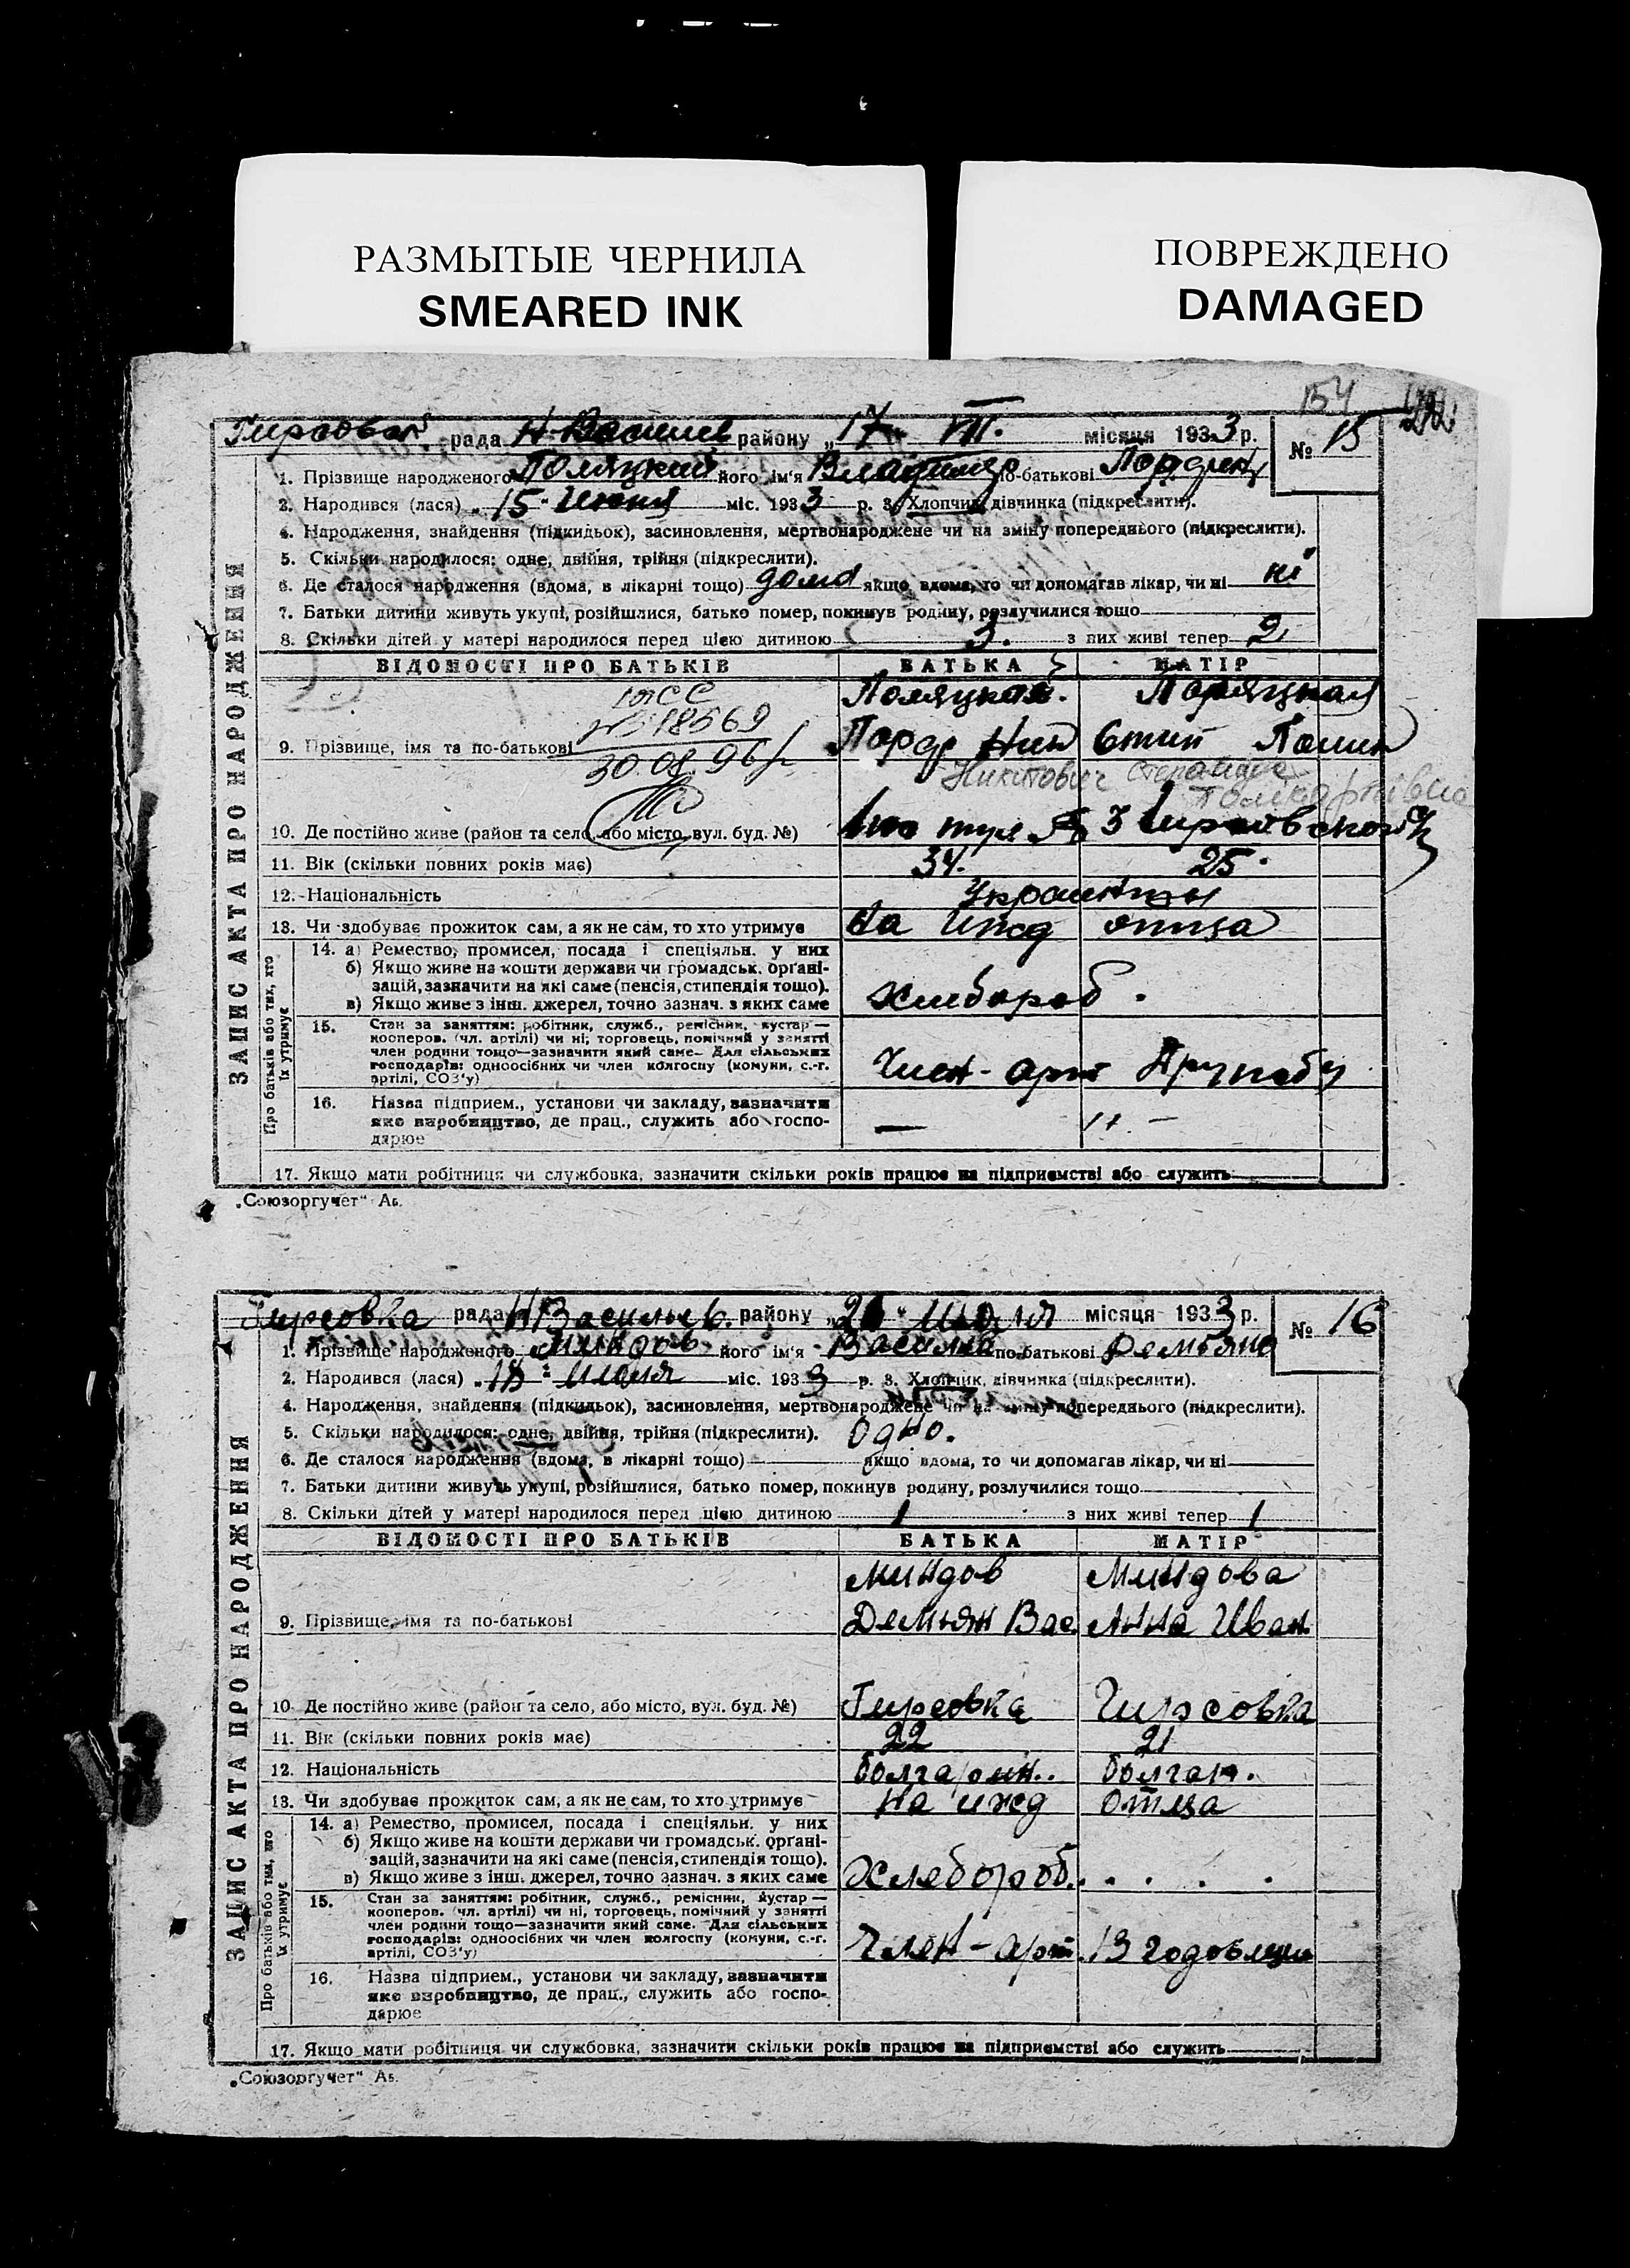 РАЗМЫТЫЕ ЧЕРНИЛА
SMEARED INK
ПОВРЕЖДЕНО
DAMAGED
154
рада Н-Васил района „17 VII. місяця 1933 р. № 15
1. Прізвище народженого Поляцкий його ім'я Владимир по-батькові
2. Народився (лася) „15" Июня міс. 1933 р. 3. Хлопчик, дівчинка (підкреслити).
4. Народження, знайдення (підкидьок), засиновлення, мертвонароджене чи на зміну попереднього (підкреслити).
5. Скільки народилося: одне, двійня, трійня (підкреслити).
6. Де сталося народження (вдома, в лікарні тощо) дома якщо вдома, то чи допомагав лікар, чи ні ні
7. Батьки дитини живуть укупі, розійшлися, батько помер, покинув родину, розлучилися тощо
8. Скільки дітей у матері народилося перед цією дитиною 3. з них живі тепер 2.
ВІДОМОСТІ ПРО БАТЬКІВ БАТЬКА МАТІР
ЗАПИС АКТА ПРО НАРОДЖЕННЯ
№ 18569
30.08.96
9. Прізвище, імя та по-батькові
Никитович Степанида
Полікарпівна
10. Де постійно живе (район та село, або місто, вул. буд. №)
11. Вік (скільки повних років має) 34. 25.
12. Національність Украинцы
13. Чи здобуває прожиток сам, а як не сам, то хто утримує На ижд отца
Про батьків або тих, хто їх утримує
14. а) Ремество, промисел, посада і спеціяльн. у них
б) Якщо живе на кошти держави чи громадськ. орґані-
зацій, зазначити на які саме (пенсія, стипендія тощо).
в) Якщо живе з інш. джерел, точно зазнач. з яких саме
Хлебороб.
15. Стан за заняттям: робітник, служб., ремісник, кустар —
кооперов. (чл. артілі) чи ні; торговець, помічний у занятті
член родини тощо—зазначити який саме. Для сільських
господарів: одноосібних чи член колгоспу (комуни, с.-г.
артілі, СОЗ'у)
Член-арт
16. Назва підприєм., установи чи закладу, зазначити
яке виробництво, де прац., служить або госпо-
дарює
17. Якщо мати робітниця чи службовка, зазначити скільки років працює на підприємстві або служить
„Союзоргучет"
Гирсовка рада Н Васильев. району „20" Июля місяця 1933 р. № 16
1. Прізвище народженого Миндов його ім'я Василий по-батькові Демьяно
2. Народився (лася) „18" Июля міс. 1933 р. 3. Хлопчик, дівчинка (підкреслити).
4. Народження, знайдення (підкидьок), засиновлення, мертвонароджене чи на зміну попереднього (підкреслити).
5. Скільки народилося: одне, двійня, трійня (підкреслити). Одно.
6. Де сталося народження (вдома, в лікарні тощо) якщо вдома, то чи допомагав лікар, чи ні
7. Батьки дитини живуть укупі, розійшлися, батько помер, покинув родину, розлучилися тощо
8. Скільки дітей у матері народилося перед цією дитиною 1 з них живі тепер 1
ВІДОМОСТІ ПРО БАТЬКІВ БАТЬКА МАТІР
ЗАПИС АКТА ПРО НАРОДЖЕННЯ
Миндов Миндова
9. Прізвище, імя та по-батькові Демьян Вас. Анна Иван.
10. Де постійно живе (район та село, або місто, вул. буд. №) Гирсовка Гирсовка
11. Вік (скільки повних років має) 22 21
12. Національність болгарин. болгар.
13. Чи здобуває прожиток сам, а як не сам, то хто утримує На ижд Отца
Про батьків або тих, хто їх утримує
14. а) Ремество, промисел, посада і спеціяльн. у них
б) Якщо живе на кошти держави чи громадськ. орґані-
зацій, зазначити на які саме (пенсія, стипендія тощо).
в) Якщо живе з інш. джерел, точно зазнач. з яких саме
Хлебороб.
15. Стан за заняттям: робітник, служб., ремісник, кустар —
кооперов. (чл. артілі) чи ні, торговець, помічний у занятті
член родини тощо—зазначити який саме. Для сільських
господарів: одноосібних чи член колгоспу (комуни, с.-г.
артілі, СОЗ'у)
Член-арт. 13 годовщи
16. Назва підприєм., установи чи закладу, зазначити
яке виробництво, де прац., служить або госпо-
дарює
17. Якщо мати робітниця чи службовка, зазначити скільки років працює на підприємстві або служить
„Союзоргучет"